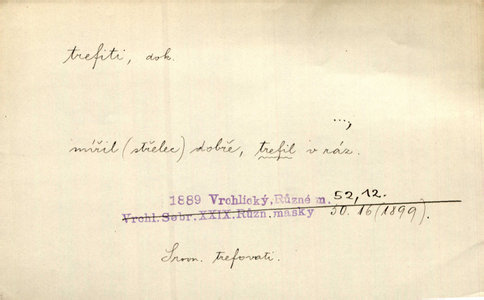 trefiti, dok.
...,
mířil (střelec) dobře, trefil v ráz.
1889 Vrchlický, Různé m. 52, 12.
Vrchl. Sebr. XXIX. Různ. masky 50. 16 (1899).
Srovn. trefovati.